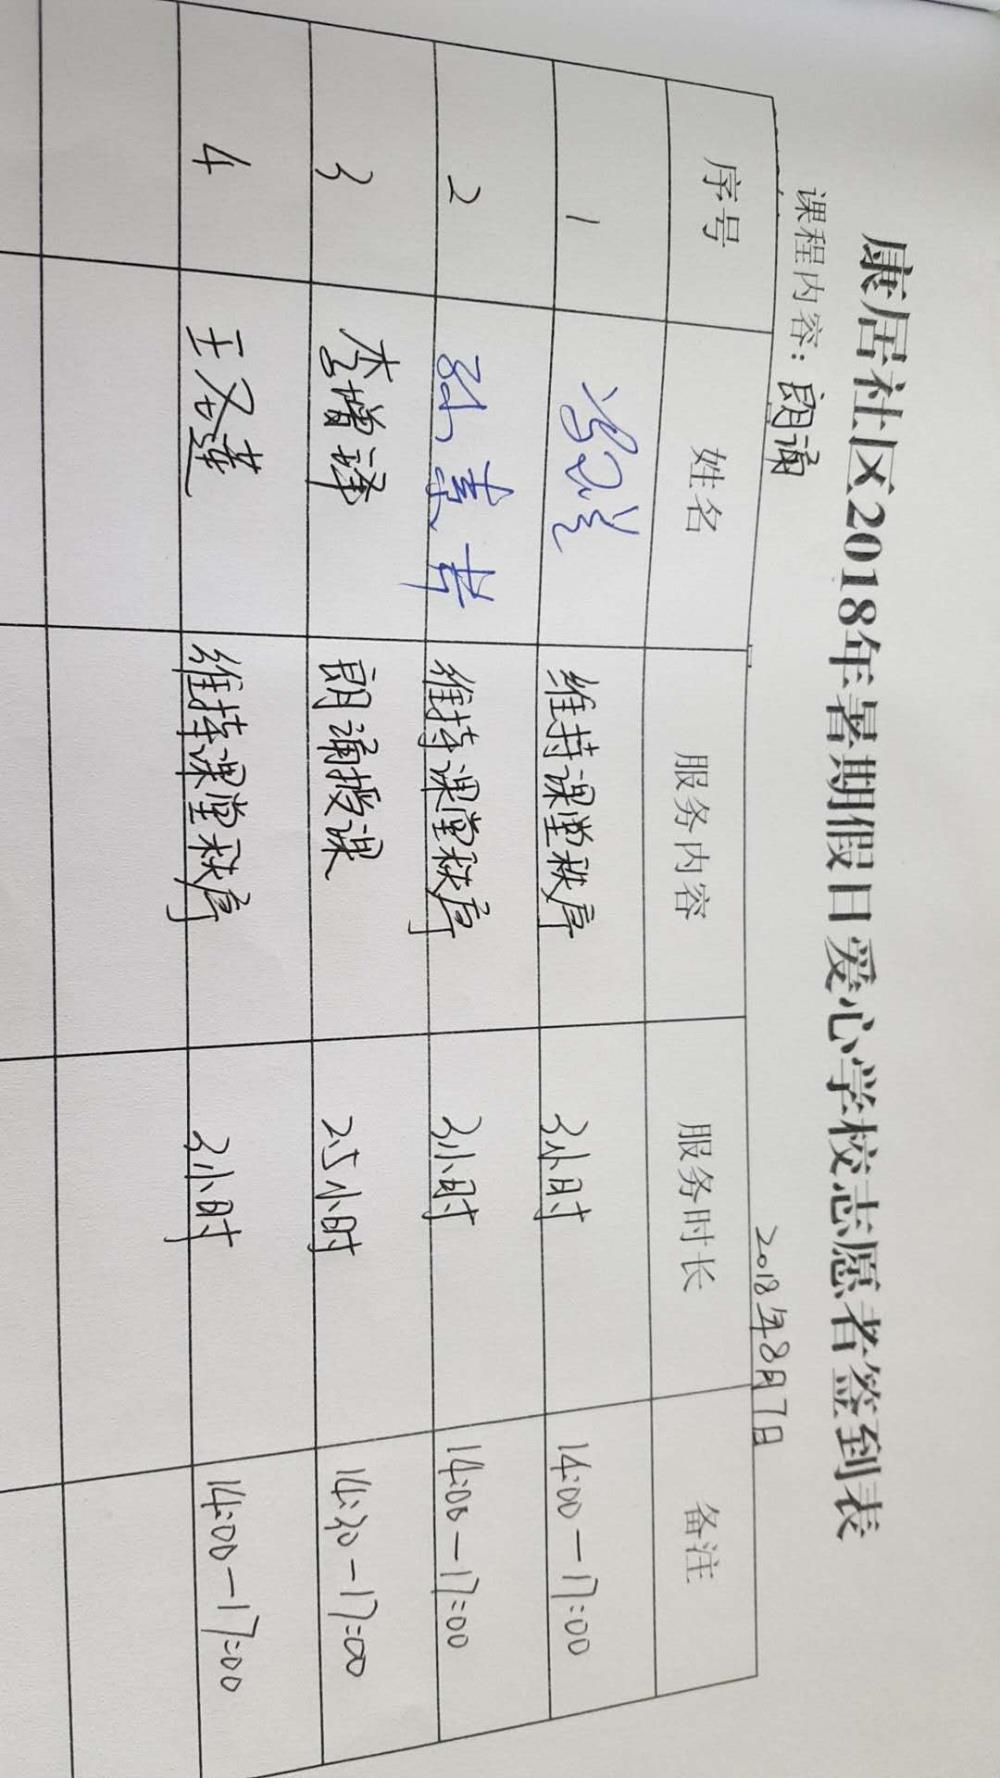 康居社区2018年暑期假日爱心学校志愿者签到表
课程内容：朗诵 2018年8月7日
序号 姓名 服务内容 服务时长 备注
1 维持课堂秩序 3小时 14:00-17:00
2 维持课堂秩序 3小时 14:00-17:00
3 李增译 朗诵授课 2.5小时 14:30-17:00
4 王 莲 维持课堂秩序 3小时 14:00-17:00